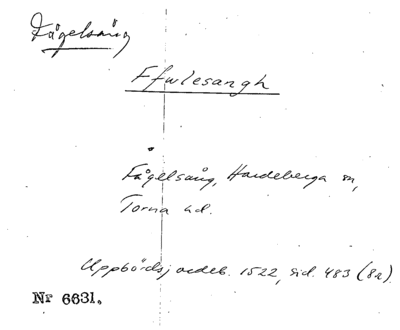 Fågelsång
Ffwlesangh
Fågelsång, Hardeberga sn,
Torna hd.
Uppbördsjordeb. 1522, sid. 483 (82).
Nr 6631.